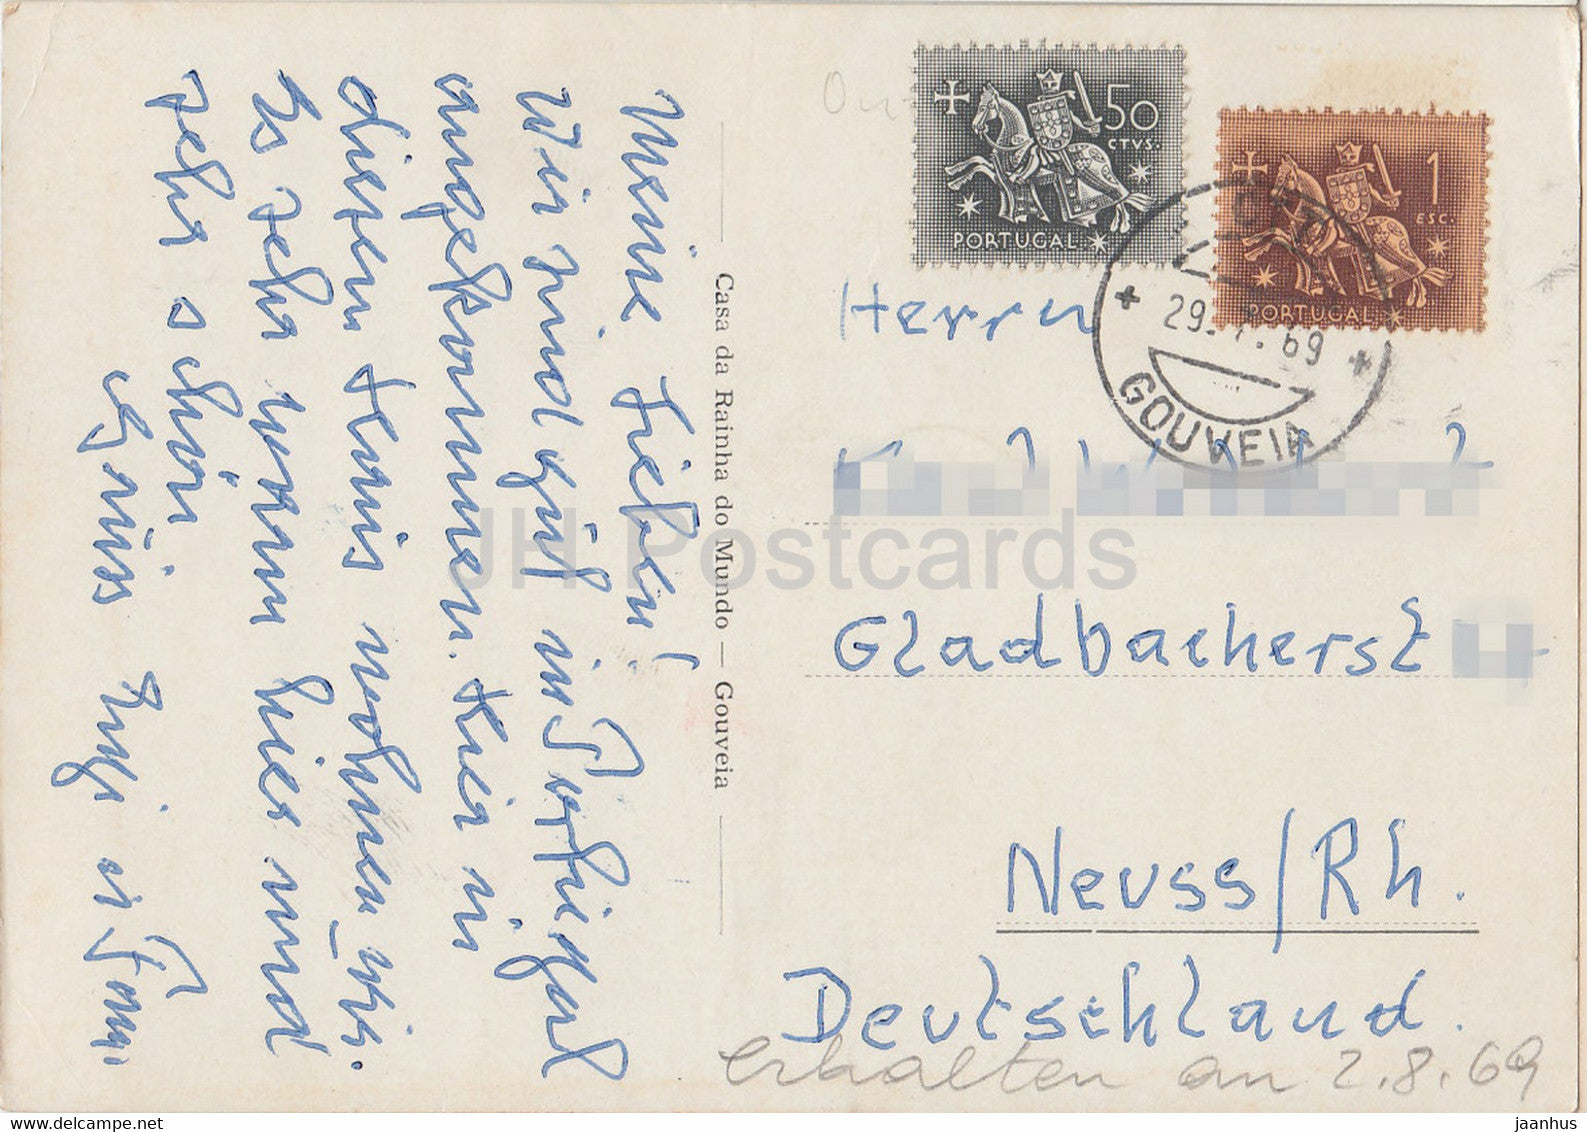 Meine Lieben!
Wir sind gut in Portugal
angekommen. Hier in
diesem Haus wohnen wir.
Es ist sehr warm hier und
sehr schön
Casa da Rainha do Mundo — Gouveia
50
CTVS.
PORTUGAL
1
ESC.
PORTUGAL
29. 7. 69
GOUVEIA
Herrn
Gladbacherst
Neuss/Rh.
Deutschland.
erhalten am 2.8.69
JH Postcards
www.delcampe.net
jaanhus